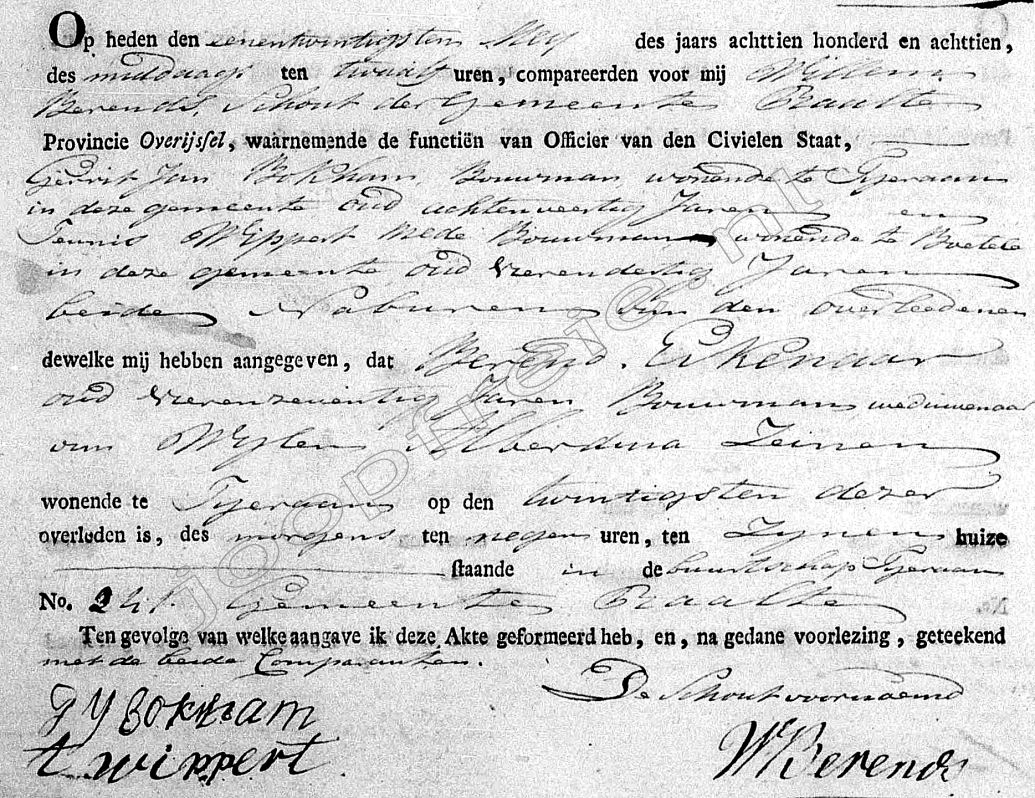 Op heden den eenentwintigsten Mey des jaars achttien honderd en achttien,
des middaags ten twaalf uren, compareerden voor mij Willem
Berends, Schout der Gemeente Raalte
Provincie Overijssel, waarnemende de functiën van Officier van den Civielen Staat,
Gerrit Jan Bokham, Bouwman, wonende te Tjeraan
in deze gemeente oud achtenveertig Jaren en
Teunis Wippert mede Bouwman wonende te Boetele
in deze gemeente oud vierendertig Jaren
beide Naburen van den overleedenen
dewelke mij hebben aangegeven, dat Berend Eikenaar
oud vierenzeventig Jaren Bouwman weduwenaar
van Wylen Alberdina Leinen
wonende te Tjeraan op den twintigsten dezer
overleden is, des morgens ten negen uren, ten Zynen huize
staande in de buurtschap Tjeraan
No. 241. Gemeente Raalte
Ten gevolge van welke aangave ik deze Akte geformeerd heb, en, na gedane voorlezing, geteekend
met de beide Comparanten.
De Schout voornoemd
G J Bokham
t wippert
W Berends
joopfrie.nt